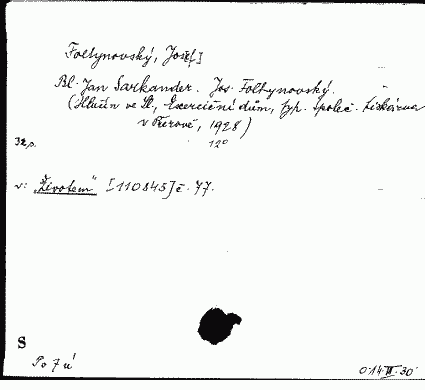 Foltynovský, Josef]
Bl. Jan Sarkander. Jos. Foltynovský.
(Hlučín ve Sl., Exerciční dům, typ. Společ. tiskárna
v Přerově, 1928)
32 s. 12°
v: „Životem" [110845] č. 77.
S
Po 7 ú
0.14.III.30